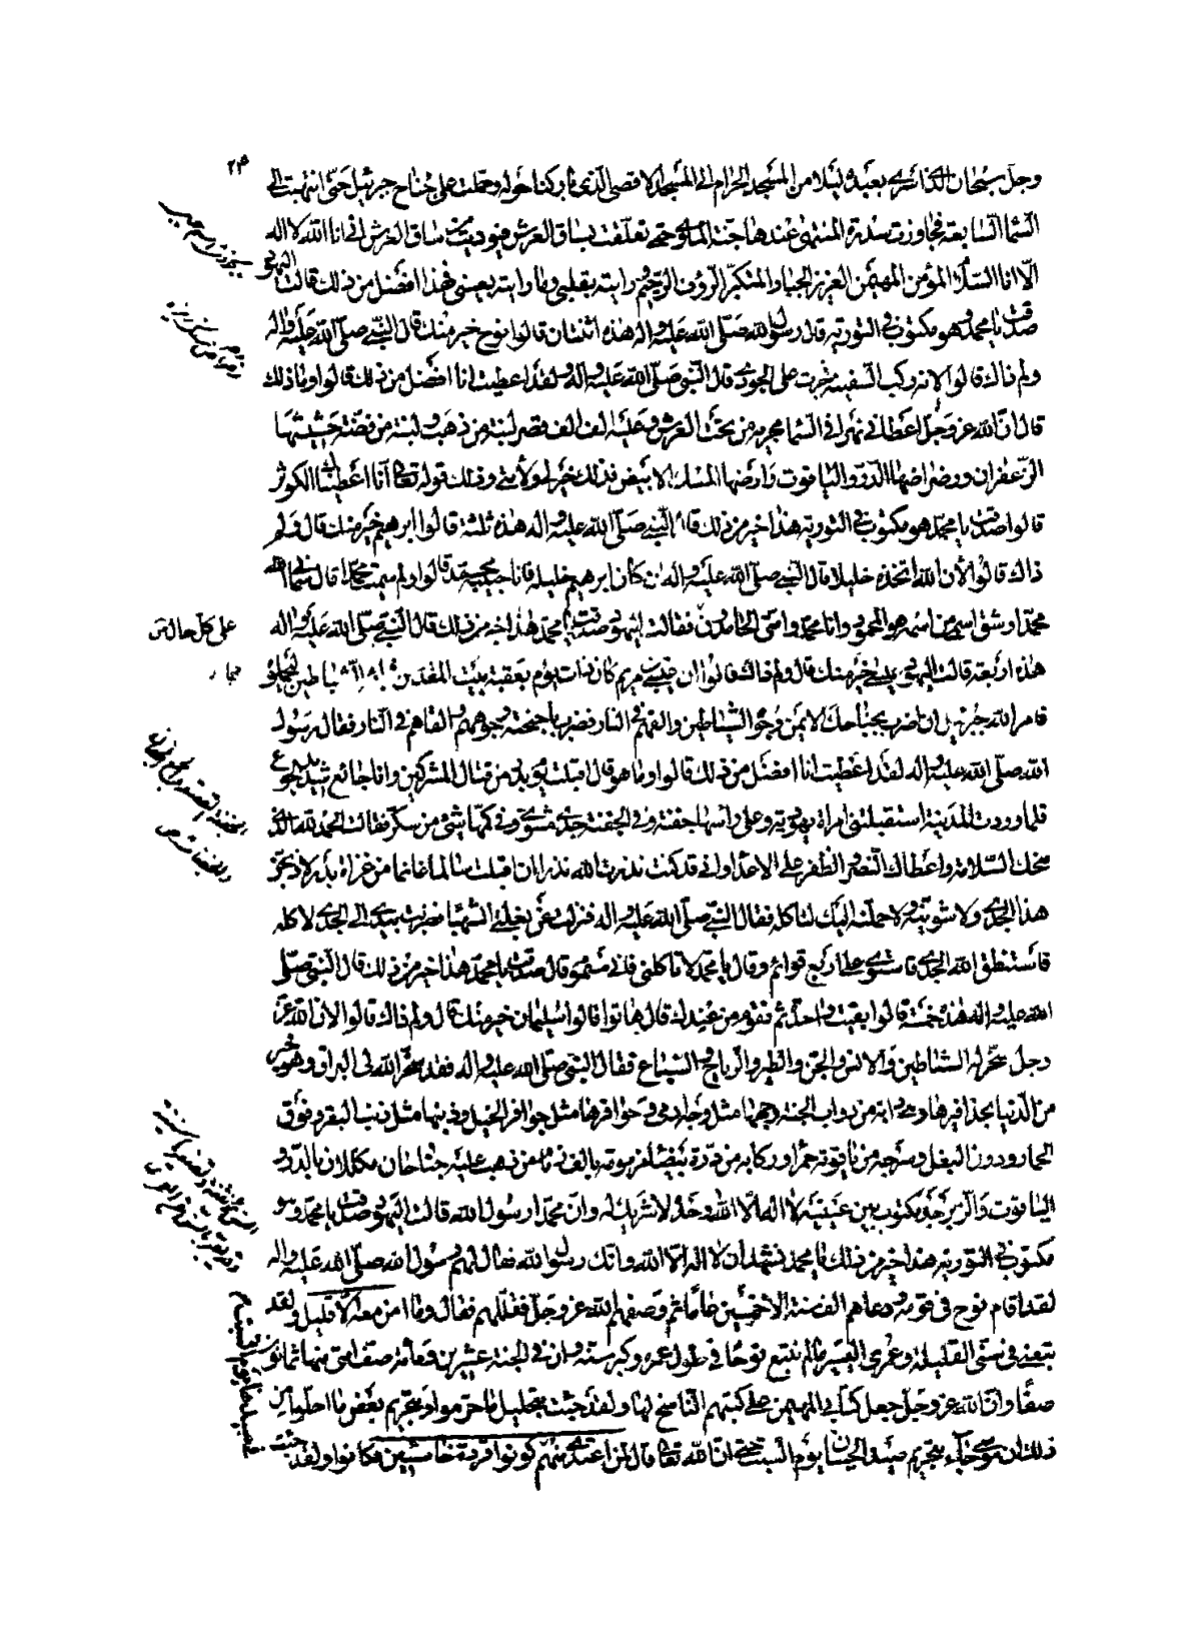 وجل سبحان الذی اسری بعبده لیلا من المسجد الحرام الی المسجد الاقصی الذی بارکنا حوله وحملت علی جناح جبرئیل حتی انتهیت الی
السماء السابعة فجاوزت سدرة المنتهی عندها جنة الماوی حتی تعلقت بساق العرش فنودیت من ساق العرش انی انا الله لا اله
الا انا السلام المؤمن المهیمن العزیز الجبار المتکبر الرؤف الرحیم ورایته بقلبی وما رایته بعینی فهذا افضل من ذلک قالت الیهود
صدقت یا محمد وهو مکتوب فی التوریة قال رسول الله صلی الله علیه واله هذه اثنتان قالوا نوح خیر منک قال النبی صلی الله علیه واله
ولم ذاک قالوا لانه رکب السفینة فجرت علی الجودی قال النبی صلی الله علیه واله ولقد اعطیت انا افضل من ذلک قالوا وما ذلک
قال ان الله عز وجل اعطانی نهرا فی السماء مجریه من تحت العرش وعلیه الف الف قصر لبنة من ذهب ولبنة من فضة حشیشها
الزعفران ورضراضها الدر والیاقوت وارضها المسک الابیض فذلک خیر لی ولامتی وذلک قوله تعالی انا اعطیناک الکوثر
قالوا صدقت یا محمد هو مکتوب فی التوریة هذا خیر من ذلک قال النبی صلی الله علیه واله هذه ثلثة قالوا ابرهیم خیر منک قال ولم
ذاک قالوا لان الله اتخذه خلیلا قال النبی صلی الله علیه واله ان کان ابرهیم خلیله فانا حبیبه محمد قالوا ولم سمیت محمدا قال سمانی الله
محمدا وشق اسمی من اسمه هو المحمود وانا محمد وامتی الحامدون فقالت الیهود صدقت یا محمد هذا خیر من ذلک قال النبی صلی الله علیه واله
هذه اربعة قالت الیهود عیسی خیر منک قال ولم ذاک قالوا ان عیسی بن مریم کان ذات یوم بعقبة بیت المقدس فجاءته الشیاطین لیحملوه
فامر الله جبرئیل ان اضرب بجناحک الایمن وجوه الشیاطین والقهم فی النار فضرب باجنحته وجوههم والقاهم فی النار فقال رسول
الله صلی الله علیه واله لقد اعطیت انا افضل من ذلک قالوا وما هو قال اقبلت یوم بدر من قتال المشرکین وانا جائع شدید الجوع
فلما وردت المدینة استقبلتنی امراة یهودیة وعلی راسها جفنة وفی الجفنة جدی مشوی وفی کمها شیء من سکر فقالت الحمد لله الذی
منحک السلامة واعطاک النصر والظفر علی الاعداء وانی قد کنت نذرت لله نذرا ان اقبلت سالما غانما من غزاة بدر لاذبحن
هذا الجدی ولاشوینه ولاحملنه الیک لتاکله فقال النبی صلی الله علیه واله فنزلت عن بغلتی الشهباء فضربت بیدی الی الجدی لاکله
فاستنطق الله الجدی فاستوی علی اربع قوائم وقال یا محمد لا تاکلنی فانی مسموم قالوا صدقت یا محمد هذا خیر من ذلک قال النبی صلی
الله علیه واله هذه خمسة قالوا بقیت واحدة ثم نقوم من عندک قال هاتوا قالوا سلیمان خیر منک قال ولم ذاک قالوا لان الله عز
وجل سخر له الشیاطین والانس والجن والطیر والریاح والسباع فقال النبی صلی الله علیه واله فقد سخر الله لی البراق وهو خیر
من الدنیا بحذافیرها وهی دابة من دواب الجنة وجهها مثل وجه ادمی وحوافرها مثل حوافر الخیل وذنبها مثل ذنب البقر وفوق
الحمار ودون البغل وسرجه من یاقوتة حمراء ورکابه من درة بیضاء مزمومة بالف زمام من ذهب علیه جناحان مکللان بالدر و
الیاقوت والزبرجد مکتوب بین عینیه لا اله الا الله وحده لا شریک له وان محمدا رسول الله قالت الیهود صدقت یا محمد وهو
مکتوب فی التوریة هذا خیر من ذلک یا محمد نشهد ان لا اله الا الله وانک رسول الله فقال لهم رسول الله صلی الله علیه واله
لقد اقام نوح فی قومه ودعاهم الف سنة الا خمسین عاما ثم وصفهم الله عز وجل فقللهم فقال وما امن معه الا قلیل ولقد
تبعنی فی سنی القلیلة وعمری الیسیر ما لم یتبع نوحا فی طول عمره وکبر سنه وان فی الجنة عشرین ومائة صف امتی منها ثمانون
صفا وان الله عز وجل جعل کتابی المهیمن علی کتبهم الناسخ لها ولقد جئت بتحلیل ما حرموا وبتحریم بعض ما احلوا من
ذلک ان موسی جاء بتحریم صید الحیتان یوم السبت حتی ان الله تعالی قال لمن اعتدی منهم کونوا قردة خاسئین فکانوا ولقد جئت
علی کل حال